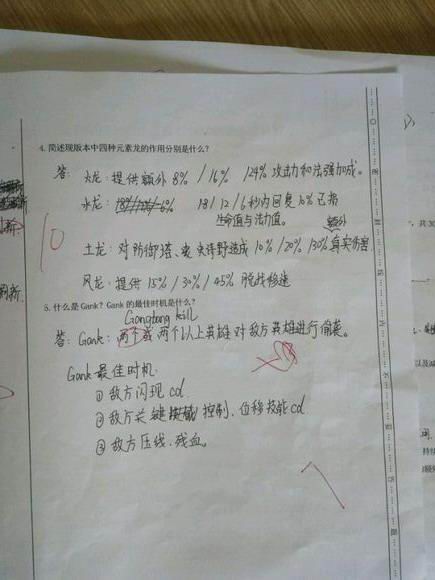 4. 简述现版本中四种元素龙的作用分别是什么?
答: 火龙: 提供额外 8% / 16% / 24% 攻击力和法强加成。
水龙: 18 / 12 / 6 秒内回复 10% 已损
生命值与法力值。
额外
土龙: 对防御塔、野造成 10% / 20% / 30% 真实伤害
10
风龙: 提供 15% / 30% / 45% 脱战移速
5. 什么是Gank? Gank 的最佳时机是什么?
Gangbang kill
答: Gank: 两个或两个以上英雄对敌方英雄进行偷袭。
Gank 最佳时机:
① 敌方闪现 cd
② 敌方关键控制、位移技能 cd
③ 敌方压线、残血。
7
刷新.
共30